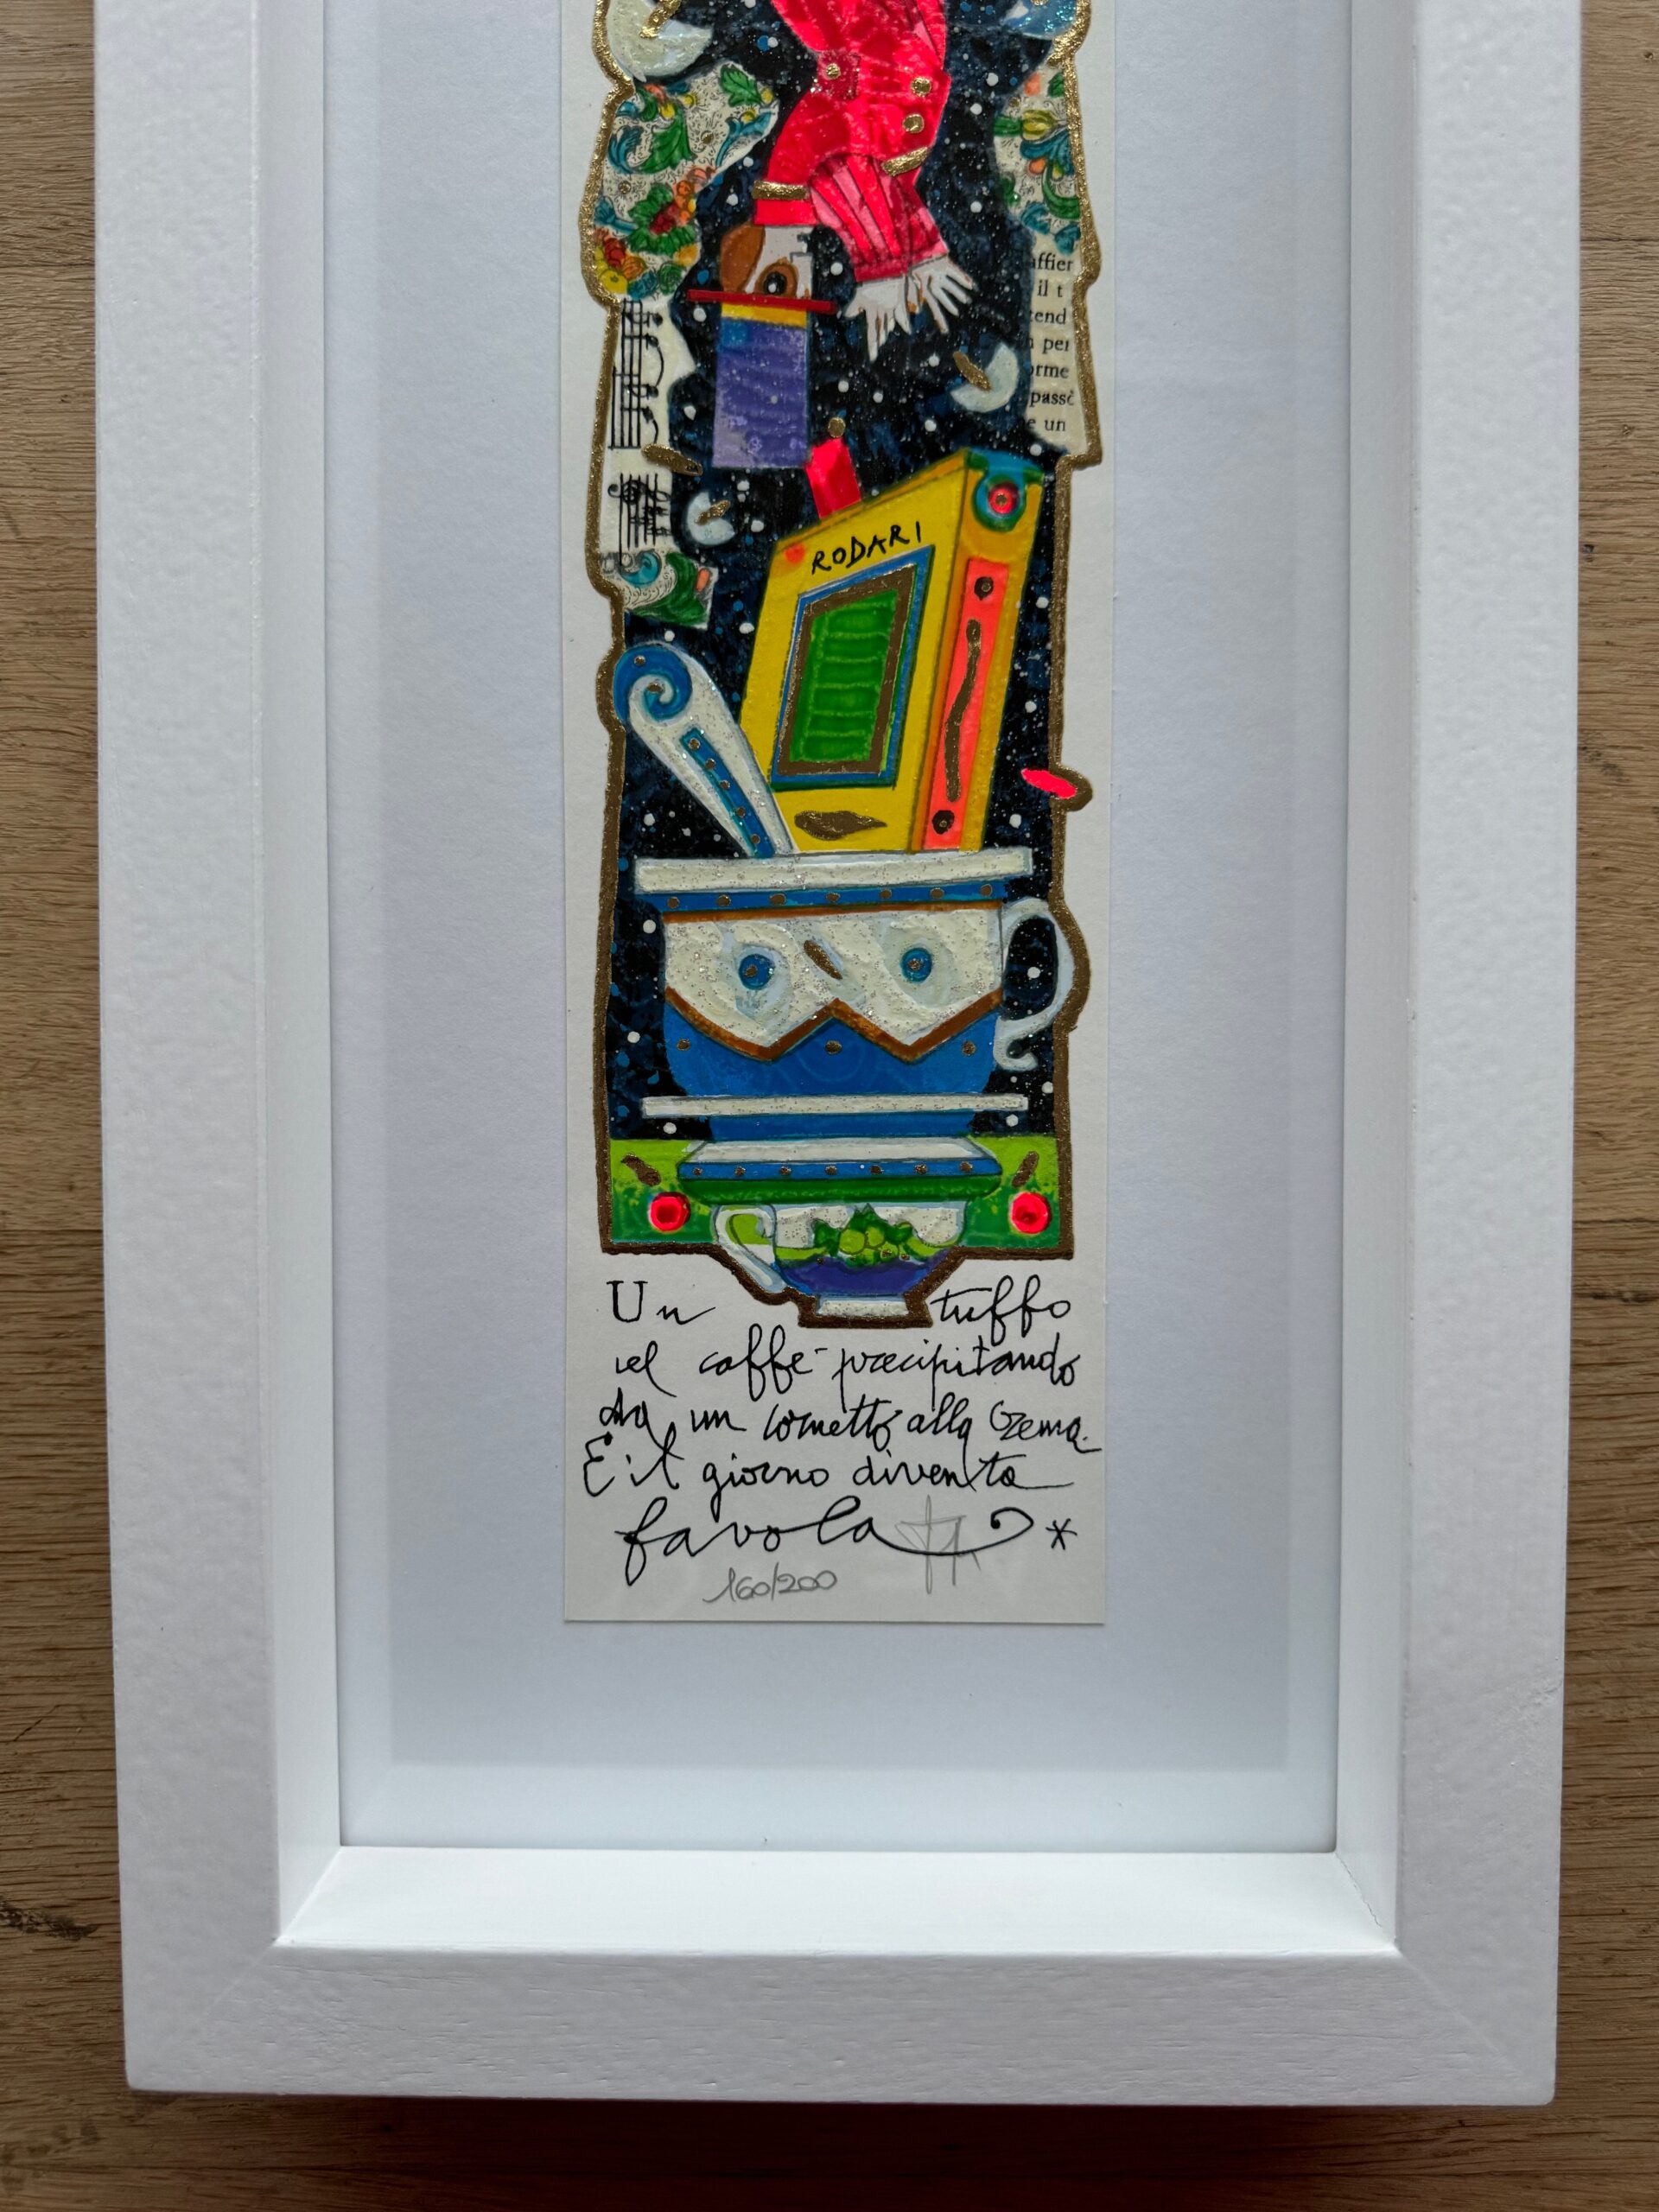 affier
il t
tend
n per
orme
passò
e un
RODARI
Un tuffo
nel caffè precipitando
da un cornetto alla crema.
E il giorno diventa
favola *
160/200